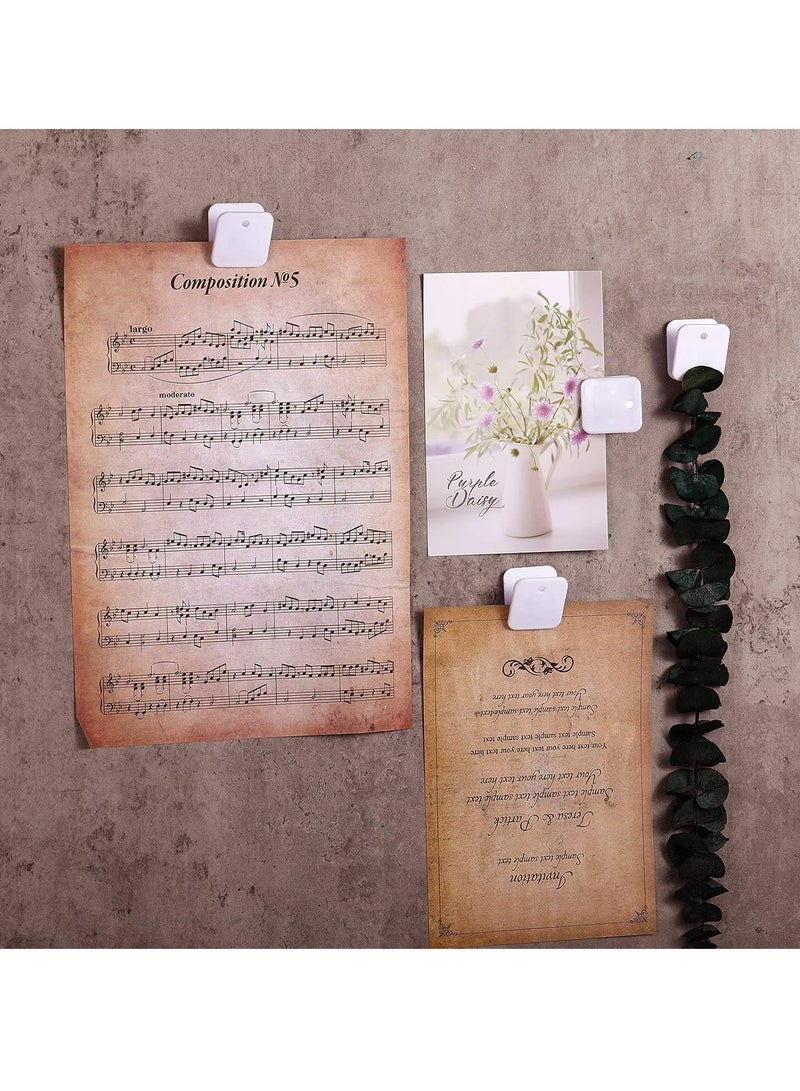 Composition Nº5
largo
moderato
Purple
Daisy
Invitation
Sample text
Teresa & Partick
Sample text sample text sample text
Your text here your text here
Your text here your text here your text here
Sample text sample text sample text
Sample text sample text sample text
Your text here your text here